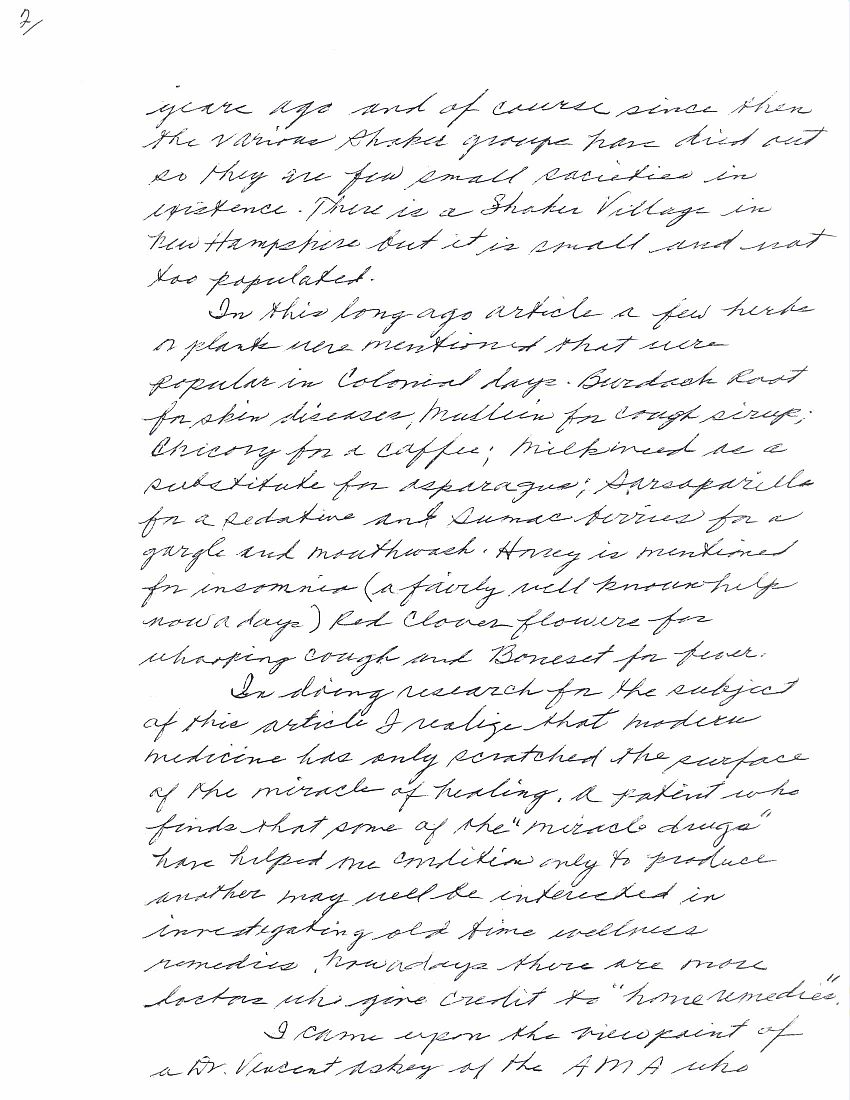 2/
years ago and of course since then
the various Shaker groups have died out
so they are few small societies in
existence. There is a Shaker Village in
New Hampshire but it is small and not
too populated.
In this long ago article a few herbs
or plants were mentioned that were
popular in Colonial days. Burdock Root
for skin diseases, Mullein for cough sirup;
Chicory for a coffee; Milkweed as a
substitute for asparagus; Sarsaparilla
for a sedative and Sumac berries for a
gargle and mouthwash. Honey is mentioned
for insomnia (a fairly well known help
nowadays) Red Clover flowers for
whooping cough and Boneset for fever.
In doing research for the subject
of this article I realize that modern
medicine has only scratched the surface
of the miracle of healing. A patient who
finds that some of the "miracle drugs"
have helped one condition only to produce
another may well be interested in
investigating old time wellness
remedies. Nowadays there are more
doctors who give credit to "home remedies".
I came upon the viewpoint of
a Dr. Vincent Askey of the AMA who